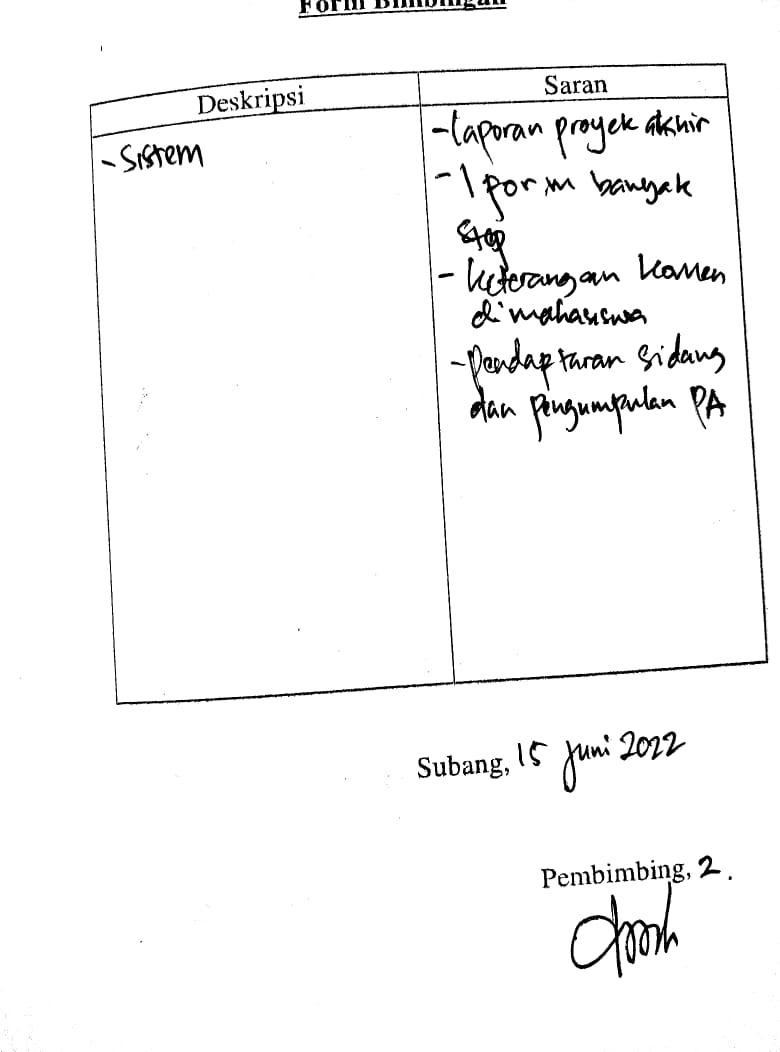 Form Bimbingan
Deskripsi
Saran
- Sistem
- laporan proyek akhir
- 1 porm banyak
step
- keterangan komen
di mahasiswa
- pendaptaran sidang
dan pengumpulan PA
Subang, 15 juni 2022
Pembimbing, 2.